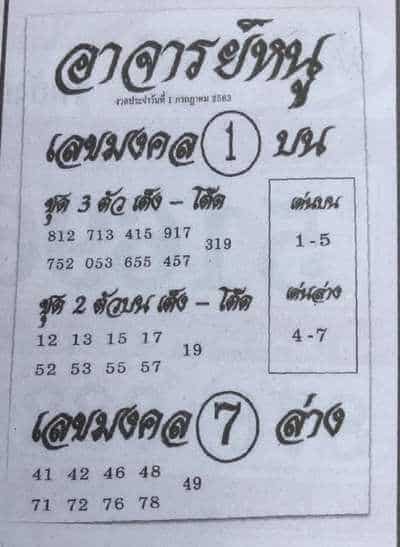 อาจารย์หนู
งวดประจำวันที่ 1 กรกฎาคม 2563
เลขมงคล 1 บน
ชุด 3 ตัว เต็ง – โต๊ด
812 713 415 917
319
752 053 655 457
ชุด 2 ตัวบน เต็ง – โต๊ด
12 13 15 17
19
52 53 55 57
เด่นบน
1 - 5
เด่นล่าง
4 - 7
เลขมงคล 7 ล่าง
41 42 46 48
49
71 72 76 78